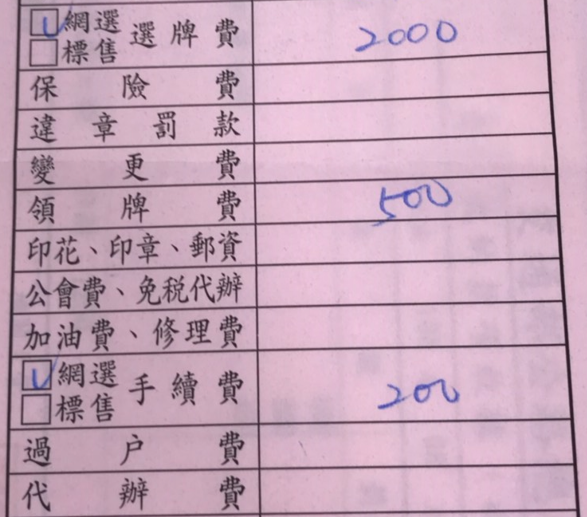 網選 選牌費 2000
標售
保險費
違章罰款
變更費
領牌費 500
印花、印章、郵資
公會費、免稅代辦
加油費、修理費
網選 手續費 200
標售
過户費
代辦費